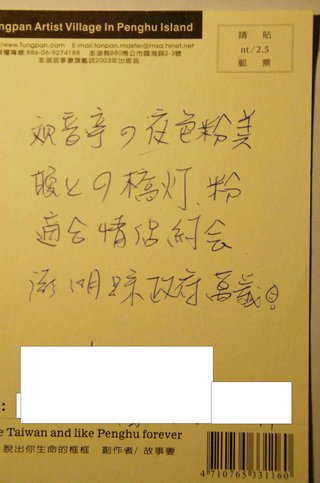 ngpan Artist Village In Penghu Island
www.Tungpan.com E-mail:tonpan.master@msa.hinet.net
授權專線:886-06-9274188 澎湖縣880馬公市臨海路2-3號
澎湖故事妻旗艦店2003年出版品
請貼
nt/2.5
郵票
观音亭の夜色粉美
との橋灯.粉
適合情侶約会
澎湖縣政府萬歲
e Taiwan and like Penghu forever
脫出你生命的框框 創作者/故事妻
4 710765 331160